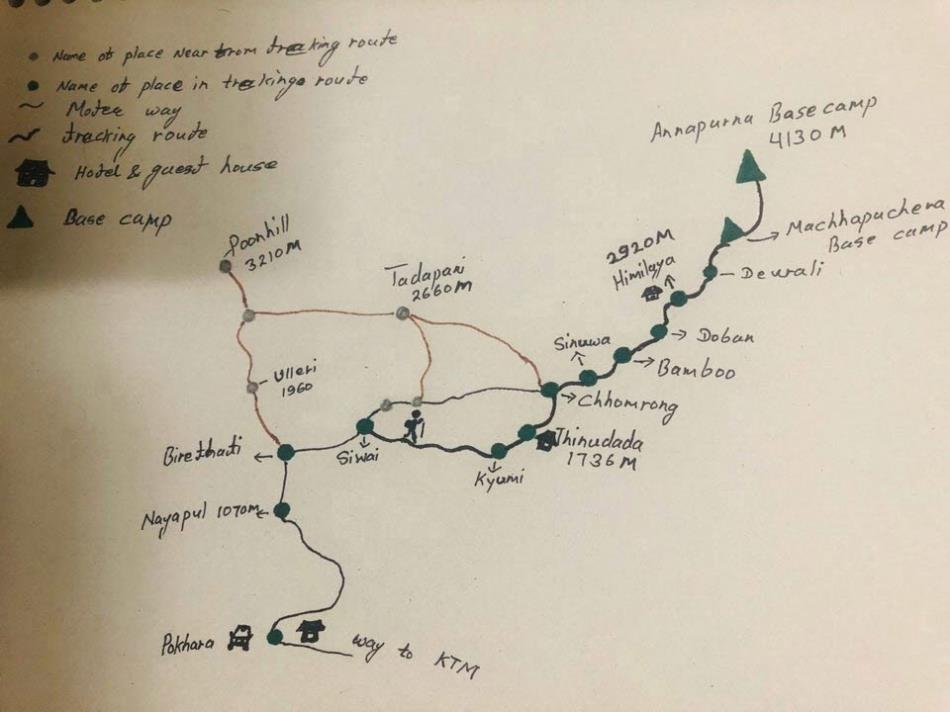 Name of place near from tracking route
Name of place in trekking route
Motee way
tracking route
Hotel & guest house
Base camp
Annapurna Base camp
4130 M
Machhapuchera
Base camp
Poonhill
3210 M
Tadapari
2660 M
2920 M
Himilaya
Deurali
Sinuwa
Doban
Bamboo
Ulleri
1960
Chhomrong
Birethati
Siwai
Jhinudada
1736 M
Kyumi
Nayapul 1070M
Pokhara
way to KTM